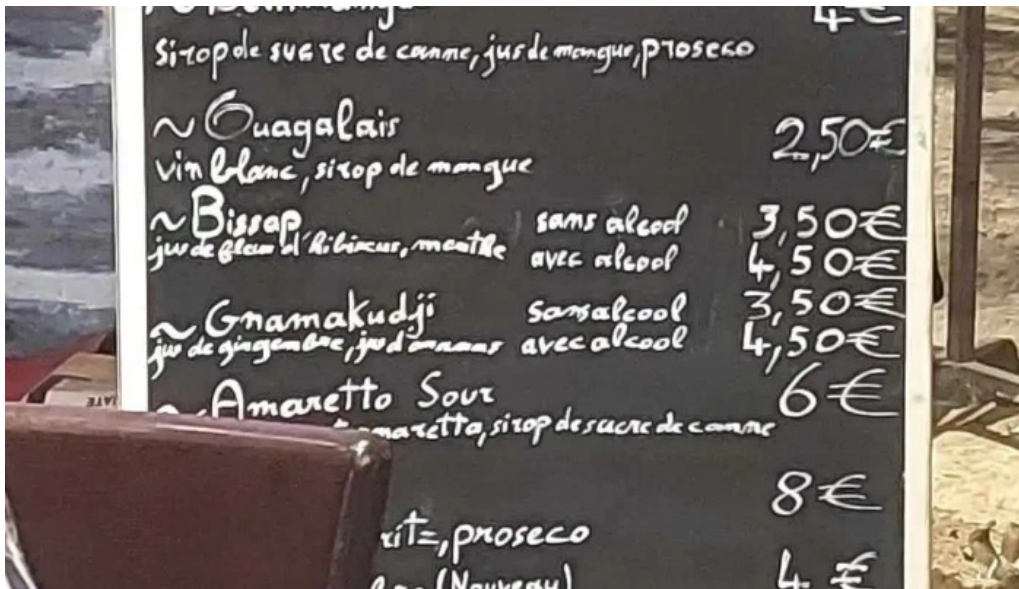 4€
sirop de sucre de canne, jus de mangue, proseco
~ Ouagalais 2,50€
vin blanc, sirop de mangue
~ Bissap sans alcool 3,50€
jus de fleur d'hibiscus, menthe avec alcool 4,50€
~ Gnamakudji sans alcool 3,50€
jus de gingembre, jus d'ananas avec alcool 4,50€
~ Amaretto Sour 6€
amaretto, sirop de sucre de canne
8€
ritz, proseco
(Nouveau) 4€